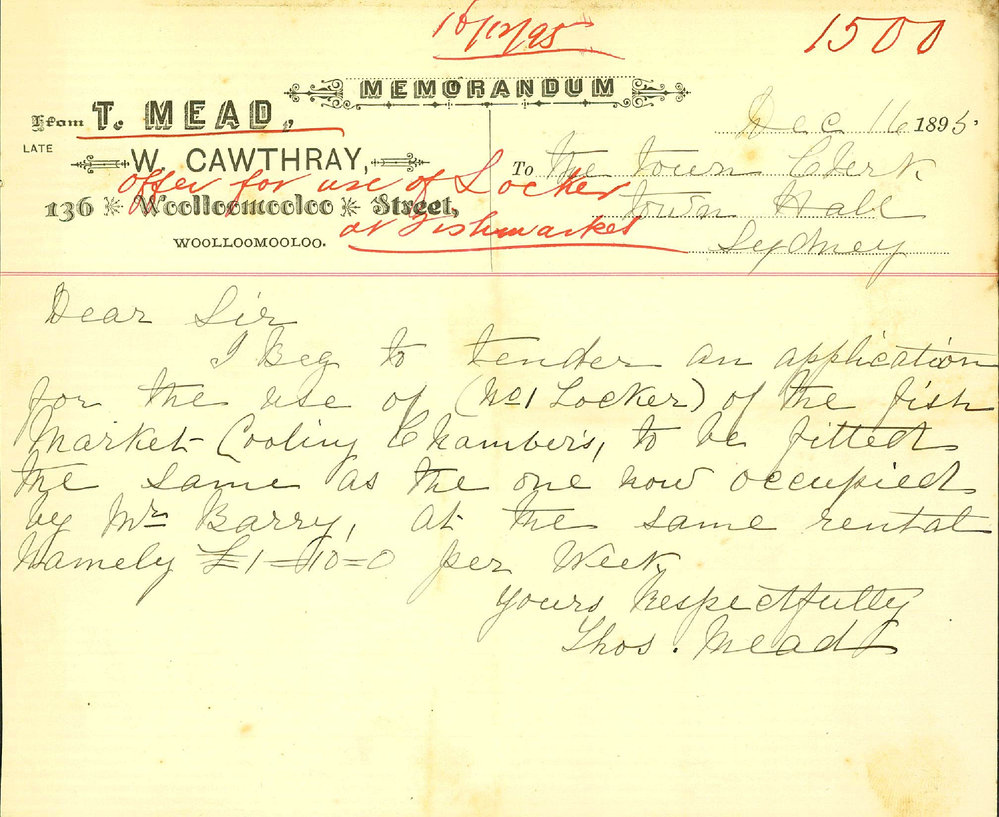 16/12/95
1500
MEMORANDUM
From T. MEAD,
LATE
W. CAWTHRAY,
136 Woolloomooloo Street,
WOOLLOOMOOLOO.
offer for use of Locker
at Fishmarket
Dec 16 1895.
To The Town Clerk
Town Hall
Sydney
Dear Sir
I Beg to tender an application
for the use of (No 1 Locker) of the fish
Market Cooling Chambers, to be fitted
the same as the one now occupied
by Mr Barry, at the same rental
Namely £1=10=0 per Week
Yours Respectfully
Thos. Mead